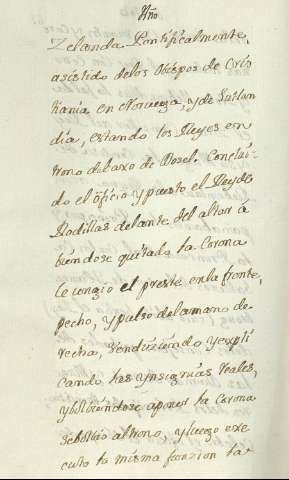 Zelanda Pontificalmente,
asistido de los Obispos de Cris
tiania en Noruega, y de Jutlan
dia, estando los Reyes en
trono debaxo de Dosel. Conclui
do el oficio y puesto el Rey de
Rodillas delante del altar á
biendose quitado la Corona
le ungio el preste en la frente,
pecho, y pulso de la mano de
recha, vendiziendo y expli
cando las ynsignias reales,
y bolbiendose aponer la Corona
se bolbio al trono, y luego exe
cuto la misma funzion la